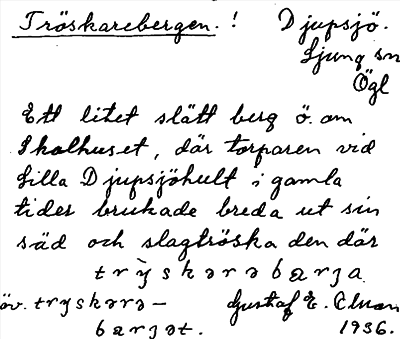 Tröskarebergen. ! Djupsjö.
Ljung sn
Ögl
Ett litet slätt berg ö. om
Skolhuset, där torparen vid
Lilla Djupsjöhult i gamla
tider brukade breda ut sin
säd och slagtröska den där
trỳskərəbærja.
öv. tryskərə- Gustaf E. Elman
bærjət. 1936.